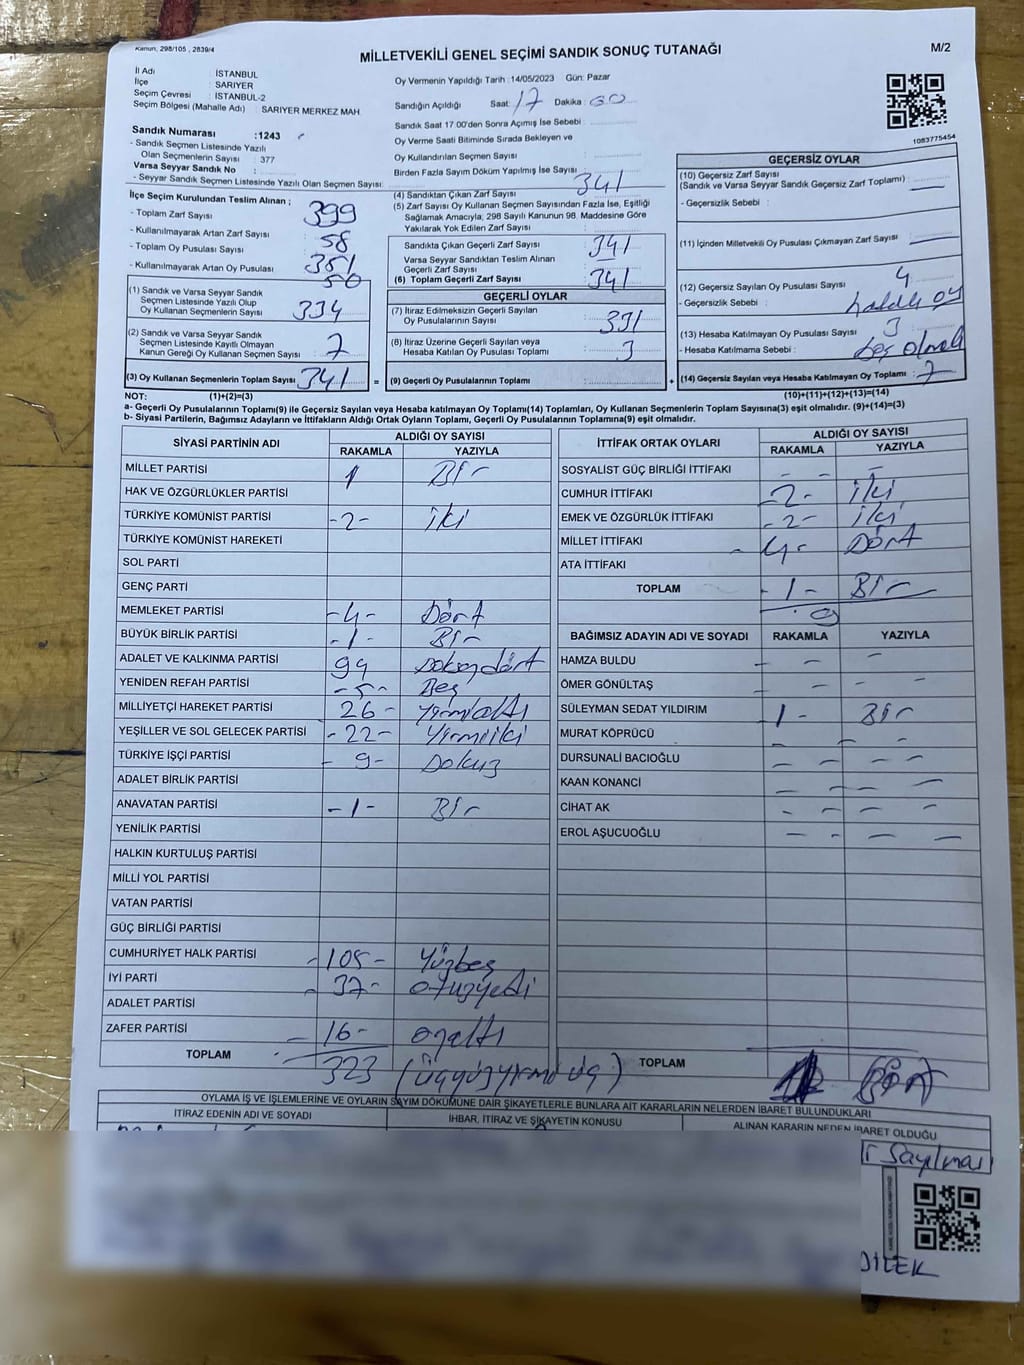 Kanun, 298/105 , 2839/4
MİLLETVEKİLİ GENEL SEÇİMİ SANDIK SONUÇ TUTANAĞI
M/2
İl Adı : İSTANBUL
İlçe : SARIYER
Seçim Çevresi : İSTANBUL-2
Seçim Bölgesi (Mahalle Adı) : SARIYER MERKEZ MAH
Oy Vermenin Yapıldığı Tarih :14/05/2023 Gün: Pazar
Sandığın Açıldığı Saat: 17 Dakika: 00
Sandık Saat 17.00'den Sonra Açılmış İse Sebebi :
Oy Verme Saati Bitiminde Sırada Bekleyen ve
Oy Kullandırılan Seçmen Sayısı :
Birden Fazla Sayım Döküm Yapılmış İse Sayısı :
1083775454
Sandık Numarası :1243
- Sandık Seçmen Listesinde Yazılı
Olan Seçmenlerin Sayısı : 377
Varsa Seyyar Sandık No :
- Seyyar Sandık Seçmen Listesinde Yazılı Olan Seçmen Sayısı:
İlçe Seçim Kurulundan Teslim Alınan ;
- Toplam Zarf Sayısı : 399
- Kullanılmayarak Artan Zarf Sayısı : 58
- Toplam Oy Pusulası Sayısı :
- Kullanılmayarak Artan Oy Pusulası : 50
(1) Sandık ve Varsa Seyyar Sandık
Seçmen Listesinde Yazılı Olup
Oy Kullanan Seçmenlerin Sayısı : 334
(2) Sandık ve Varsa Seyyar Sandık
Seçmen Listesinde Kayıtlı Olmayan
Kanun Gereği Oy Kullanan Seçmen Sayısı : 7
(3) Oy Kullanan Seçmenlerin Toplam Sayısı : 341 =
(4) Sandıktan Çıkan Zarf Sayısı : 341
(5) Zarf Sayısı Oy Kullanan Seçmen Sayısından Fazla İse, Eşitliği
Sağlamak Amacıyla; 298 Sayılı Kanunun 98. Maddesine Göre
Yakılarak Yok Edilen Zarf Sayısı :
Sandıkta Çıkan Geçerli Zarf Sayısı : 341
Varsa Seyyar Sandıktan Teslim Alınan
Geçerli Zarf Sayısı :
(6) Toplam Geçerli Zarf Sayısı : 341
GEÇERLİ OYLAR
(7) İtiraz Edilmeksizin Geçerli Sayılan
Oy Pusulalarının Sayısı : 331
(8) İtiraz Üzerine Geçerli Sayılan veya
Hesaba Katılan Oy Pusulası Toplamı : 3
(9) Geçerli Oy Pusulalarının Toplamı : +
GEÇERSİZ OYLAR
(10) Geçersiz Zarf Sayısı
(Sandık ve Varsa Seyyar Sandık Geçersiz Zarf Toplamı) :
- Geçersizlik Sebebi :
(11) İçinden Milletvekili Oy Pusulası Çıkmayan Zarf Sayısı :
(12) Geçersiz Sayılan Oy Pusulası Sayısı : 4
- Geçersizlik Sebebi : hatalı oy
(13) Hesaba Katılmayan Oy Pusulası Sayısı : 3
- Hesaba Katılmama Sebebi : boş olmalı
(14) Geçersiz Sayılan veya Hesaba Katılmayan Oy Toplamı : 7
NOT: (1)+(2)=(3) (10)+(11)+(12)+(13)=(14)
a- Geçerli Oy Pusulalarının Toplamı(9) ile Geçersiz Sayılan veya Hesaba katılmayan Oy Toplamı(14) Toplamları, Oy Kullanan Seçmenlerin Toplam Sayısına(3) eşit olmalıdır. (9)+(14)=(3)
b- Siyasi Partilerin, Bağımsız Adayların ve İttifakların Aldığı Ortak Oyların Toplamı, Geçerli Oy Pusulalarının Toplamına(9) eşit olmalıdır.
SİYASİ PARTİNİN ADI ALDIĞI OY SAYISI
RAKAMLA YAZIYLA
MİLLET PARTİSİ 1 Bir
HAK VE ÖZGÜRLÜKLER PARTİSİ
TÜRKİYE KOMÜNİST PARTİSİ -2- iki
TÜRKİYE KOMÜNİST HAREKETİ
SOL PARTİ
GENÇ PARTİ
MEMLEKET PARTİSİ -4- Dört
BÜYÜK BİRLİK PARTİSİ -1- Bir
ADALET VE KALKINMA PARTİSİ 94 Doksandört
YENİDEN REFAH PARTİSİ -5- Beş
MİLLİYETÇİ HAREKET PARTİSİ 26- yirmialtı
YEŞİLLER VE SOL GELECEK PARTİSİ -22- Yirmiiki
TÜRKİYE İŞÇİ PARTİSİ - 9- Dokuz
ADALET BİRLİK PARTİSİ
ANAVATAN PARTİSİ -1- Bir
YENİLİK PARTİSİ
HALKIN KURTULUŞ PARTİSİ
MİLLİ YOL PARTİSİ
VATAN PARTİSİ
GÜÇ BİRLİĞİ PARTİSİ
CUMHURİYET HALK PARTİSİ -105- Yüzbeş
İYİ PARTİ - 37- otuzyedi
ADALET PARTİSİ
ZAFER PARTİSİ - 16- onaltı
TOPLAM 323 (üçyüzyirmi üç)
İTTİFAK ORTAK OYLARI ALDIĞI OY SAYISI
RAKAMLA YAZIYLA
SOSYALİST GÜÇ BİRLİĞİ İTTİFAKI - - -
CUMHUR İTTİFAKI -2- iki
EMEK VE ÖZGÜRLÜK İTTİFAKI -2- iki
MİLLET İTTİFAKI - 4- Dört
ATA İTTİFAKI
TOPLAM - 1 - Bir
9
BAĞIMSIZ ADAYIN ADI VE SOYADI RAKAMLA YAZIYLA
HAMZA BULDU - - -
ÖMER GÖNÜLTAŞ - - - -
SÜLEYMAN SEDAT YILDIRIM -1- Bir
MURAT KÖPRÜCÜ - - - -
DURSUNALİ BACIOĞLU - - - -
KAAN KONANCİ - - - -
CİHAT AK - - - -
EROL AŞUCUOĞLU - - - -
TOPLAM
OYLAMA İŞ VE İŞLEMLERİNE VE OYLARIN SAYIM DÖKÜMÜNE DAİR ŞİKAYETLERLE BUNLARA AİT KARARLARIN NELERDEN İBARET BULUNDUKLARI
İTİRAZ EDENİN ADI VE SOYADI İHBAR, İTİRAZ VE ŞİKAYETİN KONUSU ALINAN KARARIN NEDEN İBARET OLDUĞU
Sayılması
DİLEK